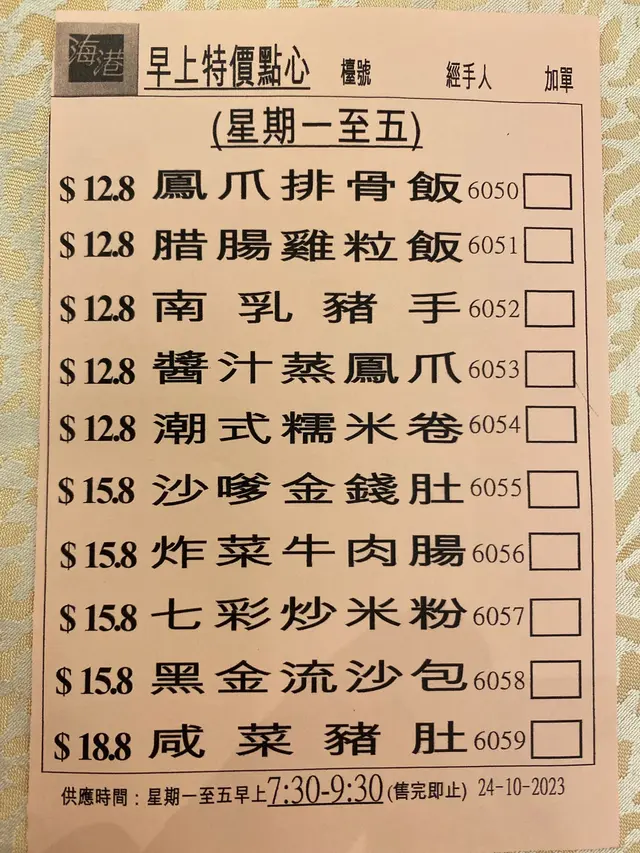 海港 早上特價點心 檯號 經手人 加單
(星期一至五)
$12.8 鳳爪排骨飯 6050
$12.8 腊腸雞粒飯 6051
$12.8 南乳豬手 6052
$12.8 醬汁蒸鳳爪 6053
$12.8 潮式糯米卷 6054
$15.8 沙嗲金錢肚 6055
$15.8 炸菜牛肉腸 6056
$15.8 七彩炒米粉 6057
$15.8 黑金流沙包 6058
$18.8 咸菜豬肚 6059
供應時間：星期一至五早上7:30-9:30(售完即止) 24-10-2023